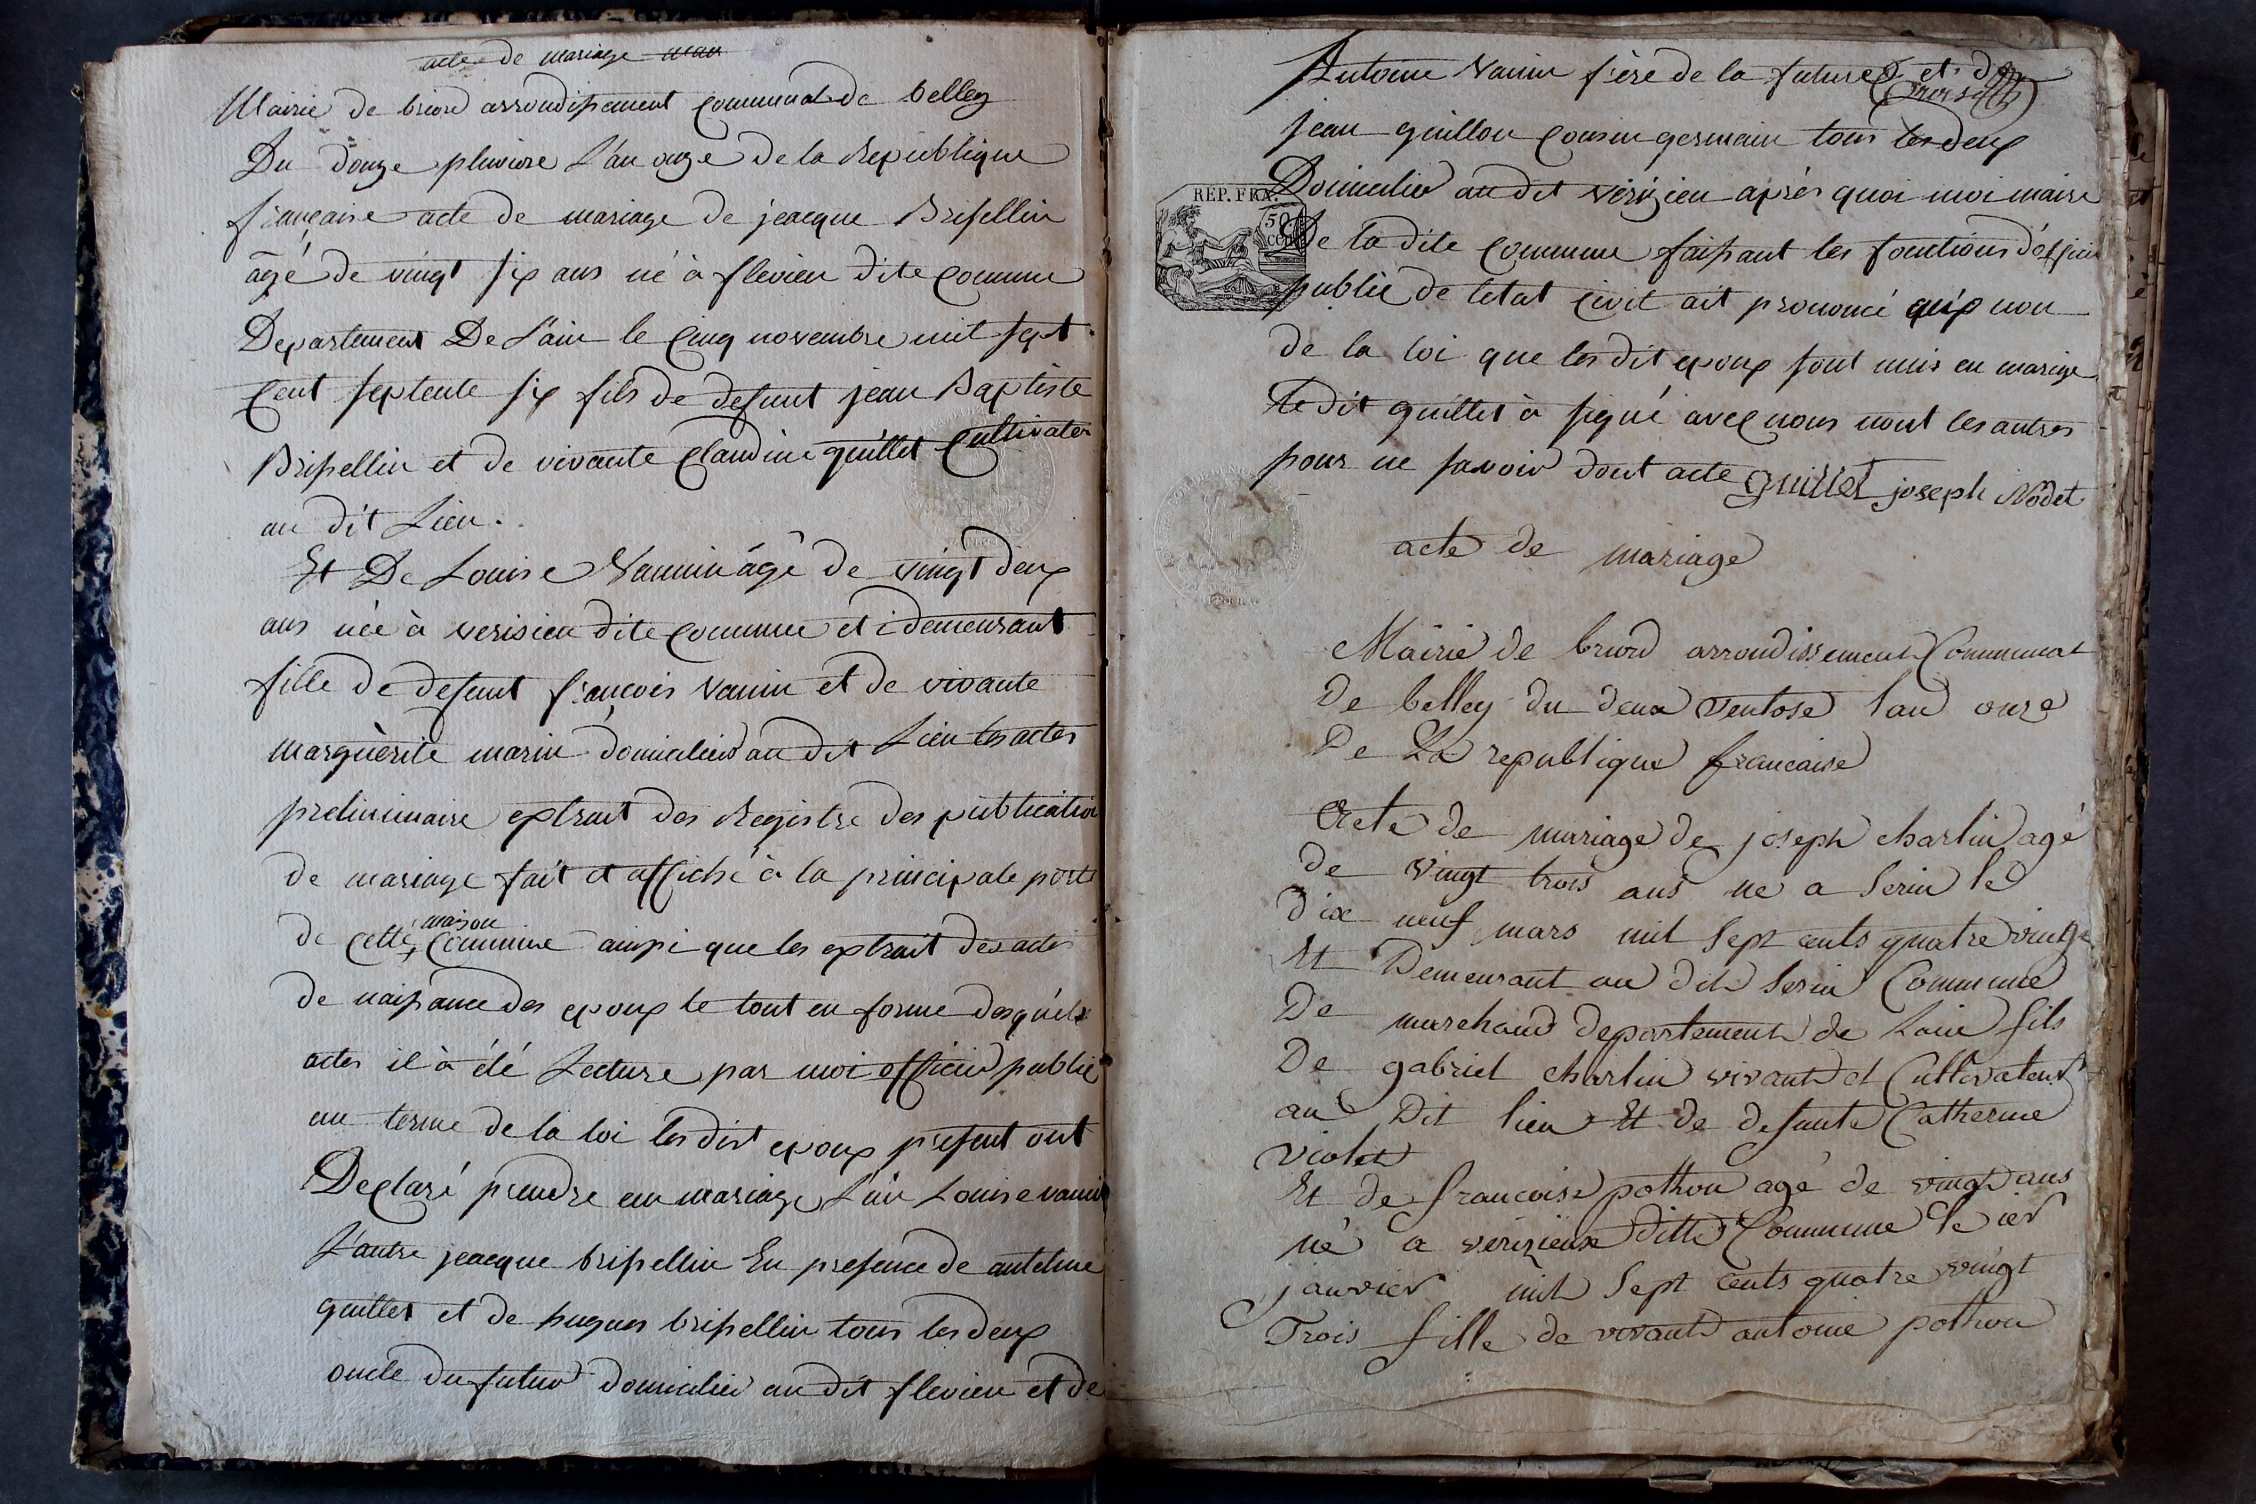 acte de mariage
Mairie de briord arrondissement communal de belley
Du douze pluviose L'an onze de la Republique
française acte de mariage de jeacque Brissellin
âgé de vingt six ans né à flevieu dite commune
Departement De L'ain le cinq novembre mil sept
cent septente six fils de defunt jean Baptiste
Brissellin et de vivante Claudine guillet Cultivater
au dit Lieu.
Et De Louise Vannin âgé de vingt deux
ans née à verisieu dite commune et i demeurant
fille de defunt françois vanin et de vivante
marguèrite marin domicilied au dit Lieu les actes
preliminaire extrait des Registre des publication
de mariage fait et affiché à la principale porte
maison
de cette commune ainssi que les extrait des actes
de naissance des epoux le tout en forme desquels
actes il à été Lecture par moi officier public
au terme de la loi les dist epoux present ont
Declaré prendre en mariage L'un Louise vannin
L'autre jeacque brissellin En presence de antelme
guillet et de hugues brissellin tous les deux
oncle du futur domicilié au dit flevieu et de
Antoine vanin frère de la future et de
jean guillon cousin germain tous les deux
Domicilié au dit vérizieu aprés quoi moi maire
REP. FRA.
50
De la dite commune faissant les fonctions d'éfficier
public de letat civil ait prononcé qu'à nom
de la loi que les dit epoux sont unis en mariage
le dit guillet à signé avec nous nont les autres
pour ne savoir dont acte guillet joseph Nodet
acte de mariage
Mairie de briord arrondissement Communal
De belley du deux ventose lan onze
De La republique francaise
Acte de mariage de joseph charlin agé
de vingt trois ans ne a Serin le
dix neuf mars mil Sept cents quatre vingt
Et Demeurant au dit Serin Commune
De marchand departement de Lain fils
De gabriel charlin vivant et Cultivateur
au Dit lieu Et de defunte Catherine
violet
Et de francoise pothon agé de vingt ans
né a verizieux ditte Commune le ier
janvier mil Sept cents quatre vingt
Trois fille de vivant antoine pothon